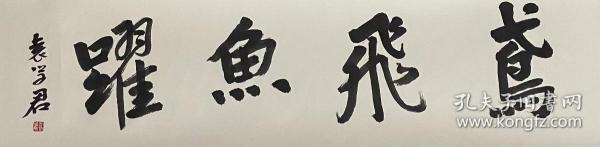 鳶飛魚躍
袁学君
孔夫子旧書网
www.kongfz.com